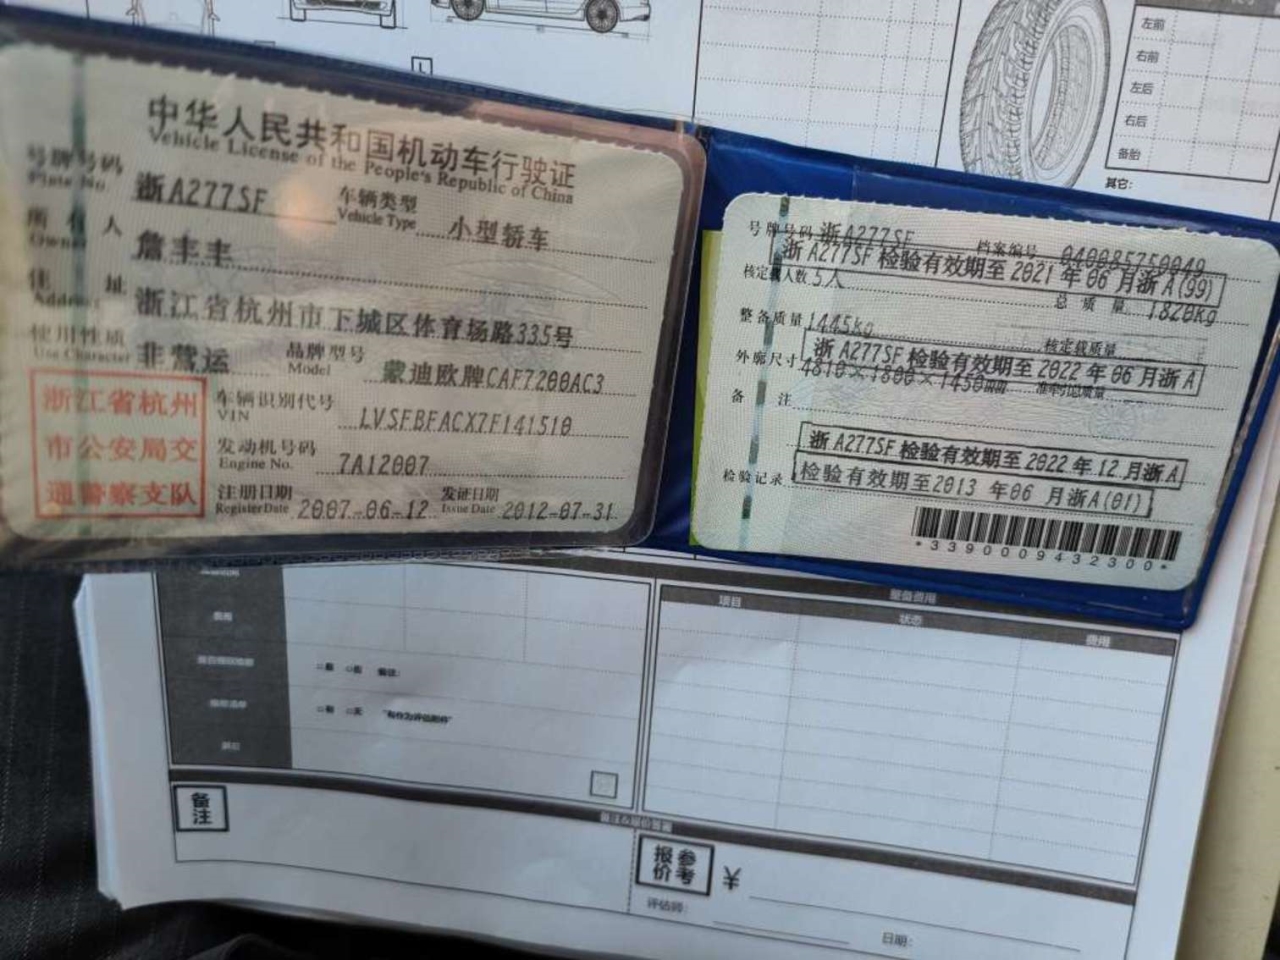 左前
右前
左后
右后
备胎
其它:
中华人民共和国机动车行驶证
Vehicle License of the People's Republic of China
号牌号码 浙A277SF 车辆类型 小型轿车
Plate No. Vehicle Type
所有人 詹丰丰
Owner
住址 浙江省杭州市下城区体育场路335号
Address
使用性质 非营运 品牌型号 蒙迪欧牌CAF7200AC3
Use Character Model
浙江省杭州
市公安局交
通警察支队
车辆识别代号 LVSFBFACX7F141510
VIN
发动机号码 7A12007
Engine No.
注册日期 2007-06-12 发证日期 2012-07-31
Register Date Issue Date
号牌号码 浙A277SF 档案编号 040085750049
浙A277SF 检验有效期至2021年06月浙A(99)
核定载人数 5人 总质量 1820kg
整备质量 1445kg 核定载质量
浙A277SF 检验有效期至2022年06月浙A
外廓尺寸 4810×1800×1450mm 准牵引总质量
备注
浙A277SF 检验有效期至2022年12月浙A
检验记录 检验有效期至2013年06月浙A(01)
*3390009432300*
整备费用
项目 状态 费用
备注
参考报价 ¥
评估师:
日期: